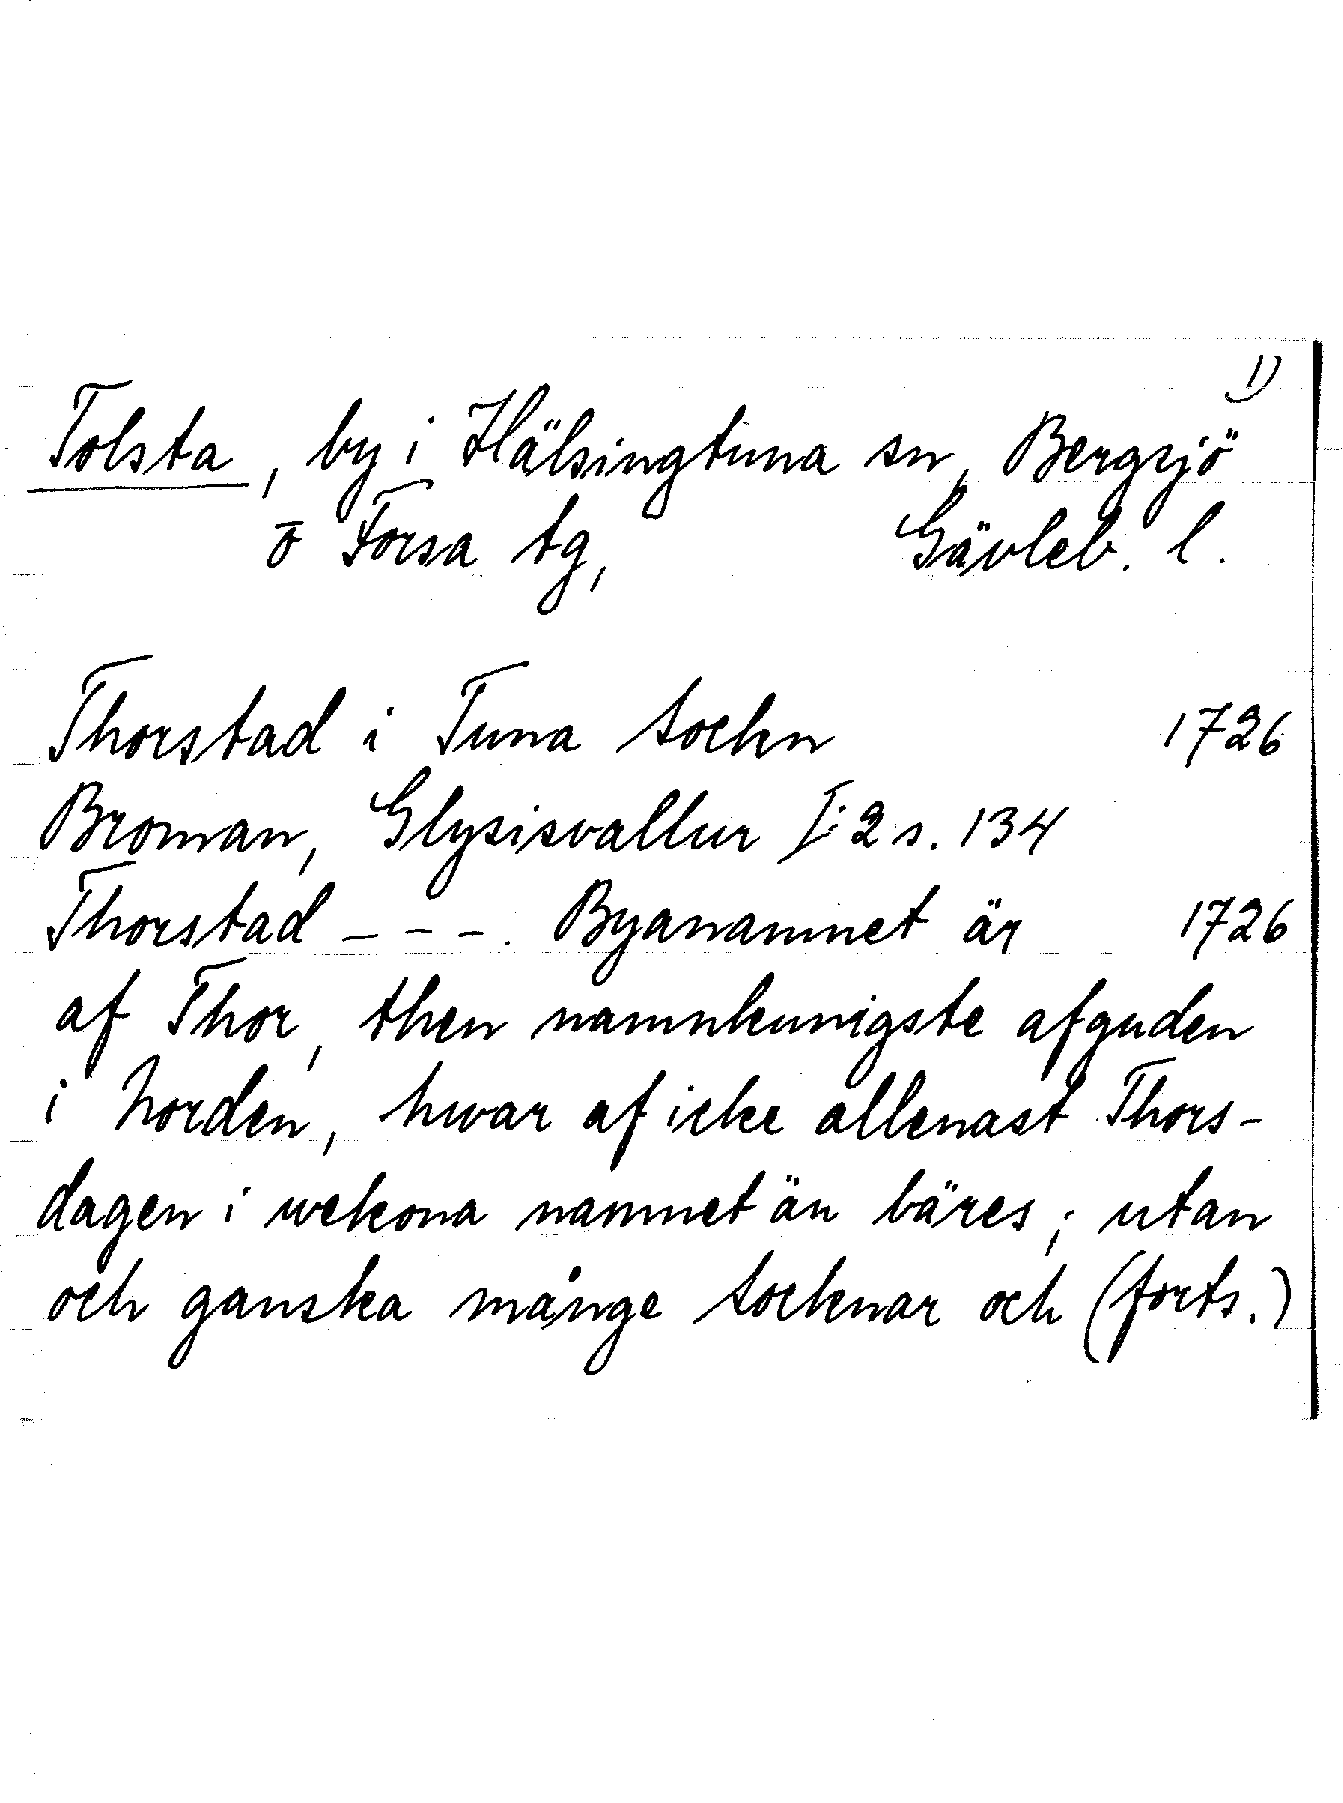 1)
Tolsta, by i Hälsingtuna sn, Bergsjö
o Forsa tg, Gävleb. l.
Thorstad i Tuna sockn 1726
Broman, Glysisvallur I:2 s. 134
Thorstad - - -. Byanamnet är 1726
af Thor, then namnkunigste afguden
i Norden, hwar af icke allenast Thors-
dagen i wekona namnet än bäres; utan
och ganska månge socknar och (forts.)